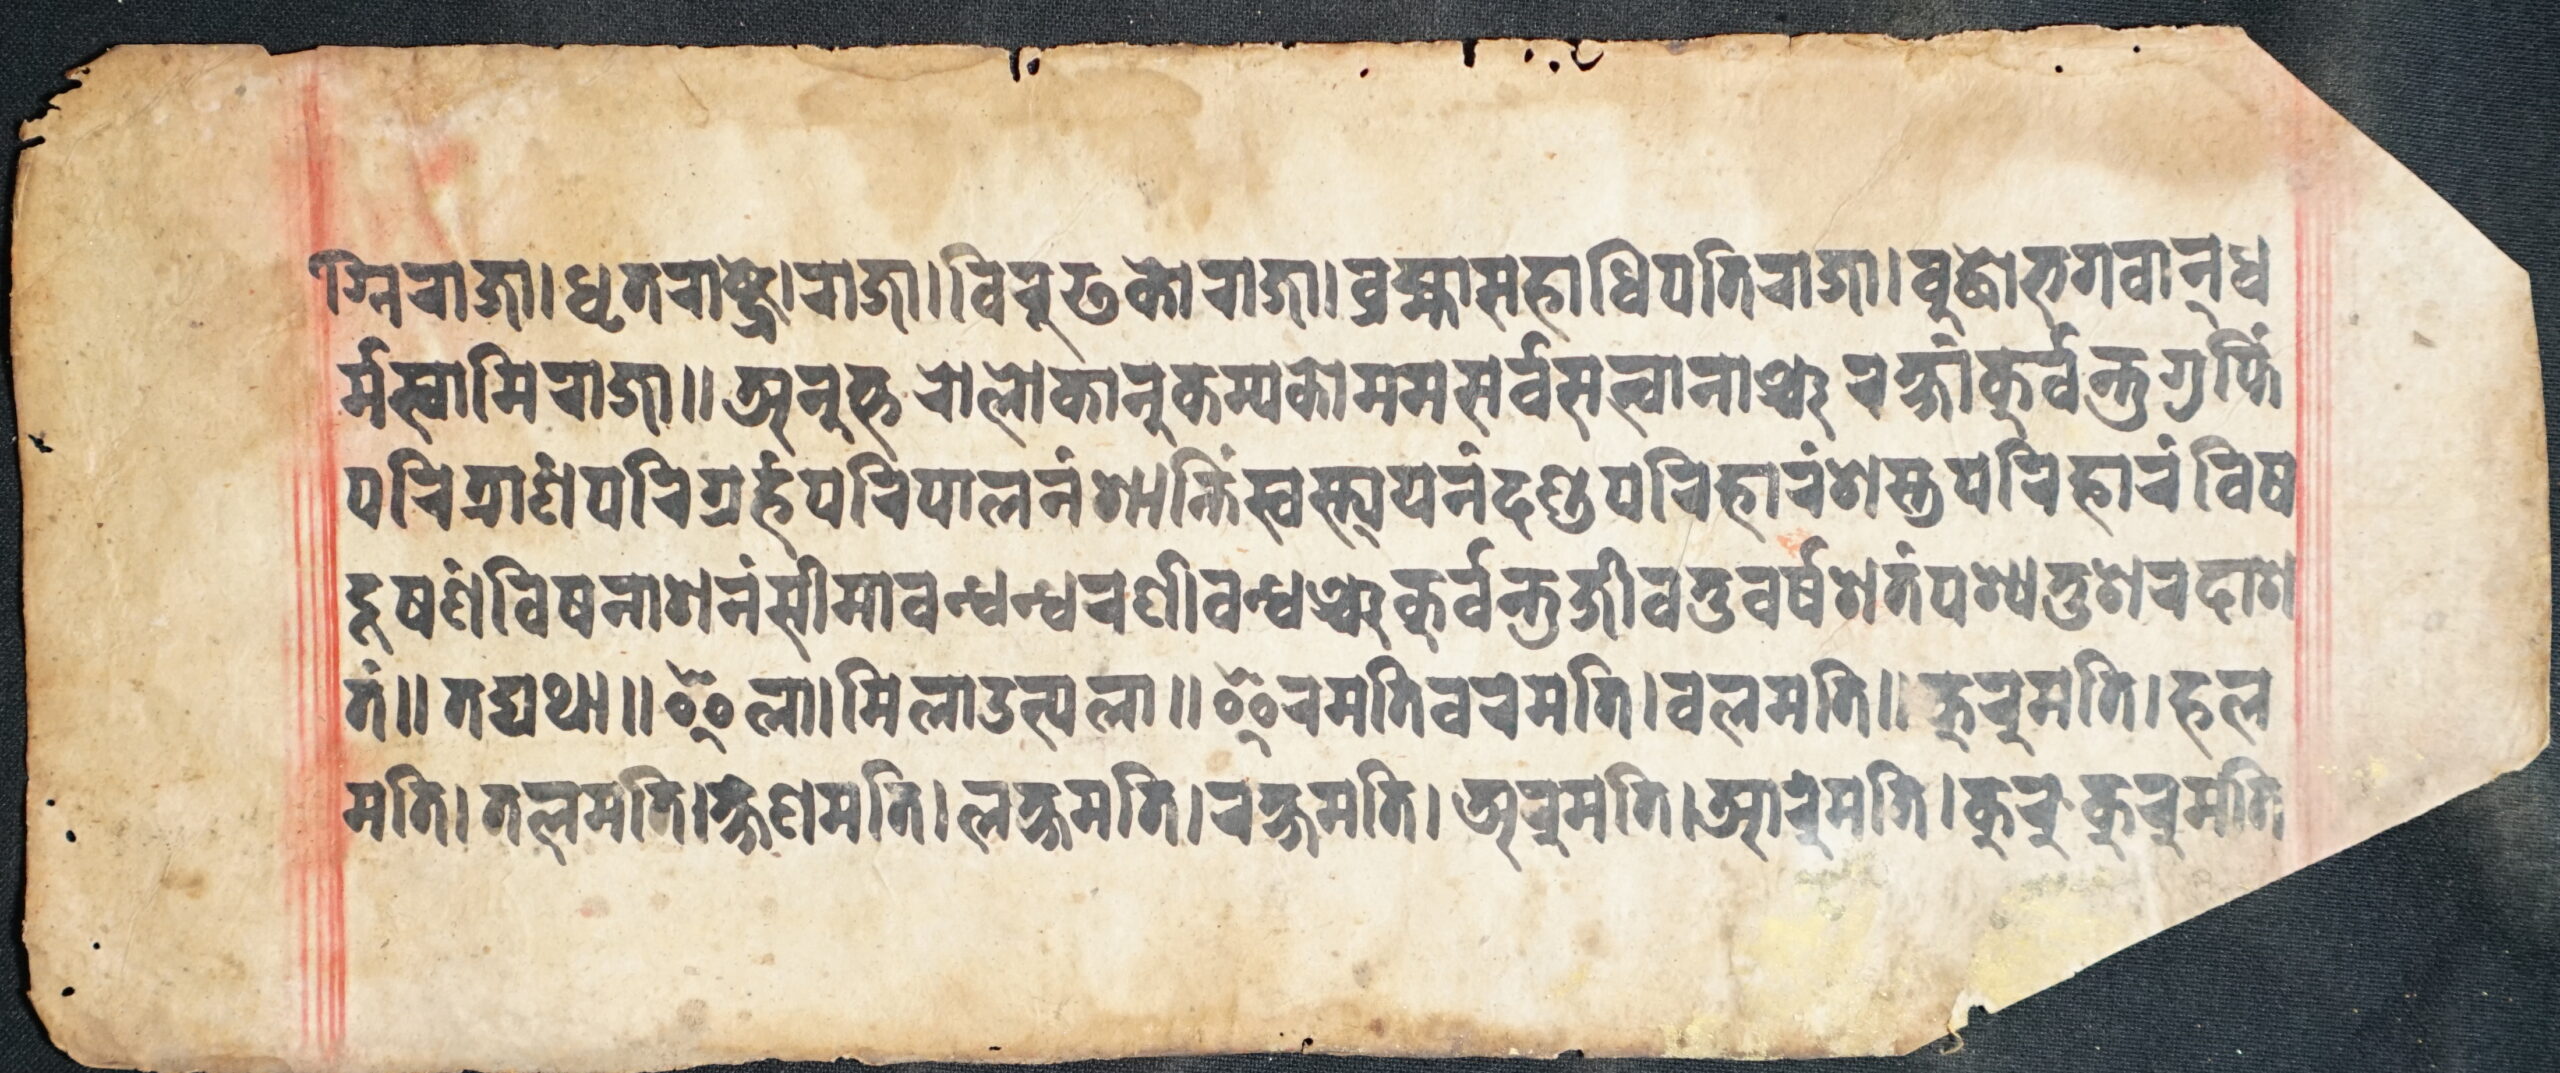 ग्निराजा। धृतराष्ट्रो। राजा। विरुढकोराजा। ब्रह्मासहाधिपतिराजा। बुद्धोभगवान्ध
र्मस्वामिराजा॥ अनुत्तरोलोकानुकम्पकोममसर्वसत्वानाञ्च रक्षांकुर्वन्तुगुप्तिं
परित्राणंपरिग्रहंपरिपालनंशान्तिंस्वस्त्ययनंदण्डपरिहारंशस्त्रपरिहारंविष
दूषणंविषनाशनंसीमाबन्धन्धरणीबन्धञ्चकुर्वन्तुजीवतुवर्षशतंपश्यतुशरदाश
तं॥ तद्यथा॥ ॐ लामिलाउत्पला॥ ॐरमतिवरमति। वलमति॥ कुरुमति। हल
मति। तलमति। क्षणमति। लक्षमति। रक्षमति। अरुमति। आरुमति। कुरु कुरुमति